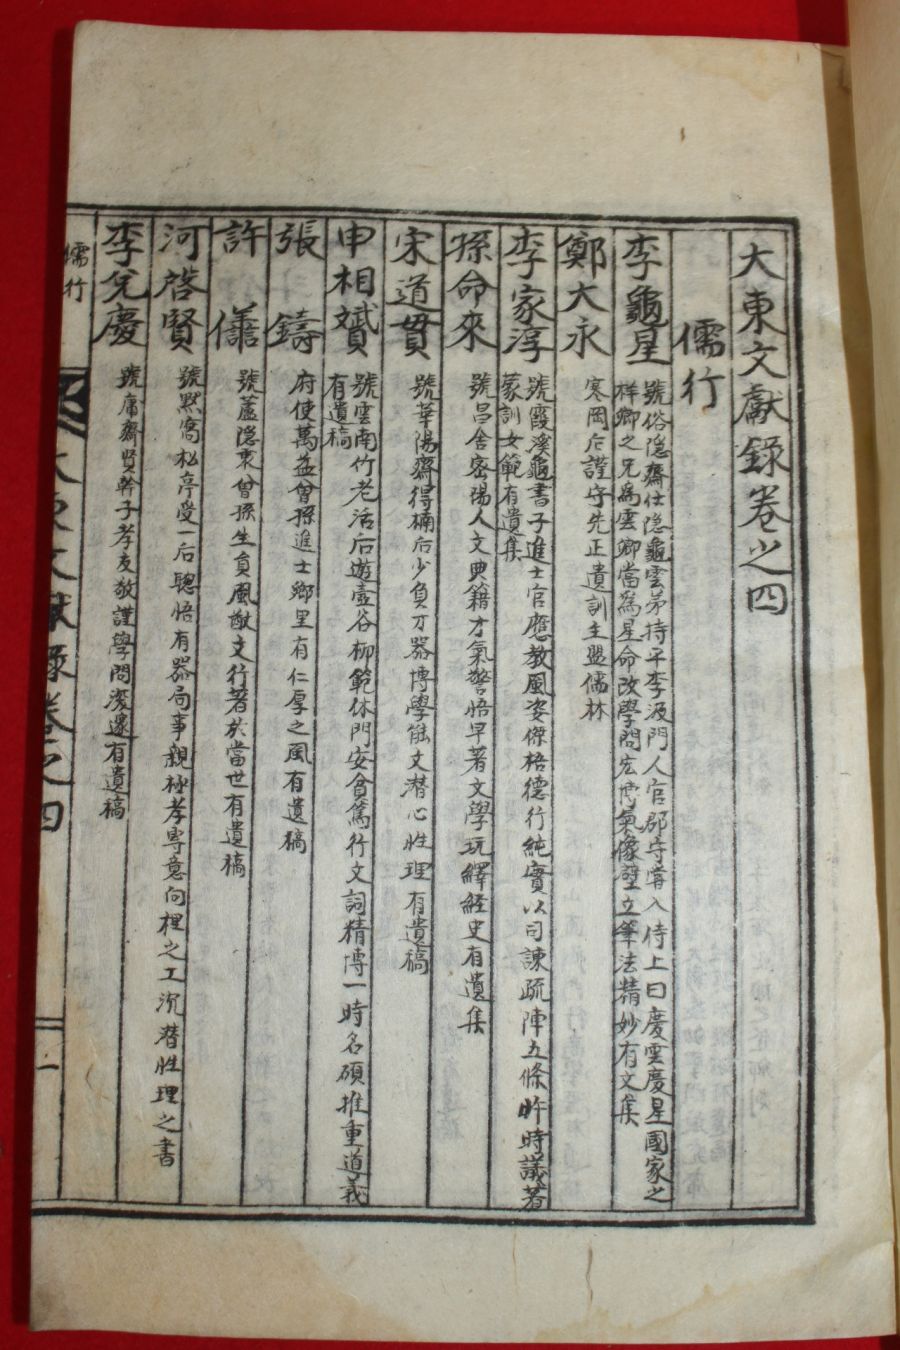 大東文獻錄卷之四
儒行
李龜星
號俗隐齋仕隐龜雲弟持平李汲門人官郡守甞入侍上曰慶雲慶星國家之
祥卿之兄爲雲卿當爲星命改學問宏博氣像壁立筆法精妙有文集
鄭大永
寒岡后謹守先正遺訓主盟儒林
李家淳
號霞溪龜書子進士官應教風姿傑梧德行純實以司諫疏陣五條時議著
蒙訓女範有遺集
孫命來
號昌舍密陽人文典籍才氣警悟早著文學玩繹經史有遺集
宋道貫
號華陽齋得楠后少負才器博學能文潜心性理有遺稿
申相贇
號雲南竹老活后遊壺谷柳範休門安貧篤行文詞精博一時名碩推重道義
有遺稿
張鑄
府使萬益曾孫進士鄉里有仁厚之風有遺稿
許
號蘆隐衷曾孫生負風猷文行著於當世有遺稿
河啓賢
號默窩松亭受一后聰悟有器局事親極孝專意向裡之工沉潜性理之書
李兌慶
號庸齋賢幹子孝友敬謹學問邃有遺稿
儒行
大東文獻錄卷之四
一